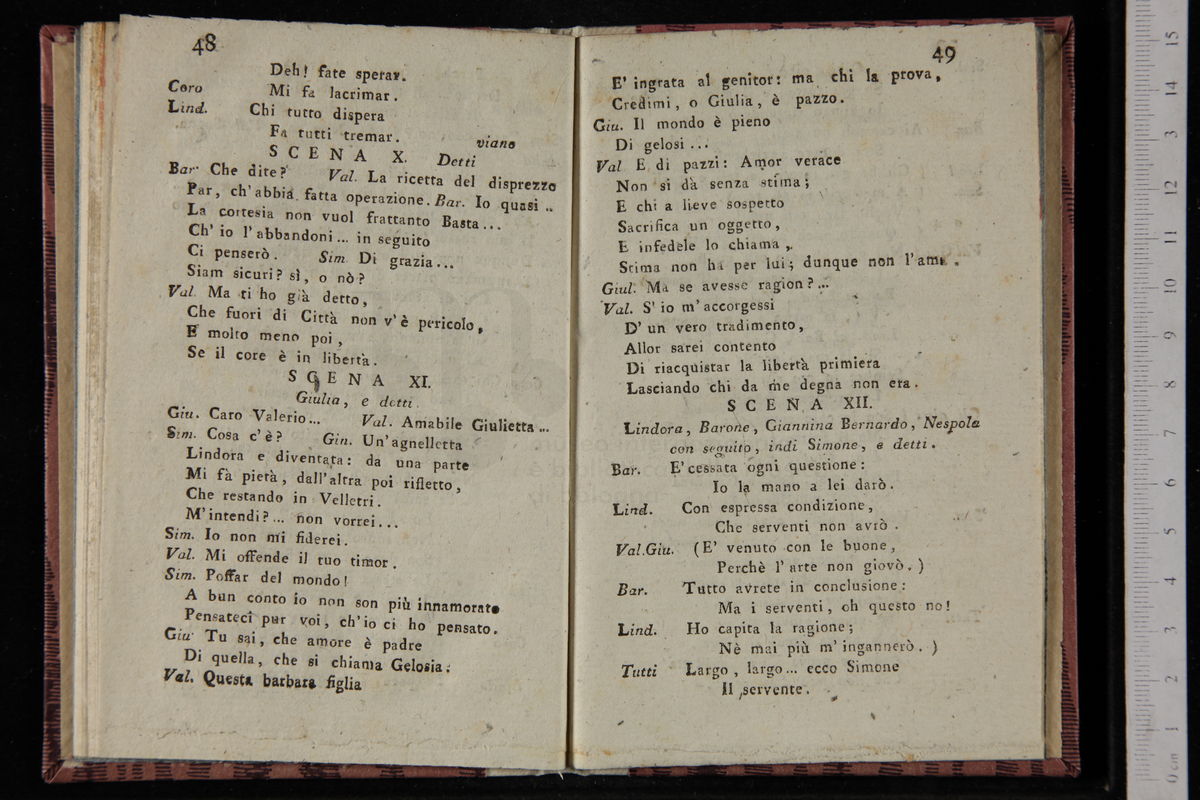 48
Deh! fate sperar.
Coro Mi fa lacrimar.
Lind. Chi tutto dispera
Fa tutti tremar.
viano
SCENA X. Detti
Bar. Che dite? Val. La ricetta del disprezzo
Par, ch'abbia fatta operazione. Bar. Io quasi ..
La cortesia non vuol frattanto Basta...
Ch' io l'abbandoni... in seguito
Ci penserò. Sim. Di grazia...
Siam sicuri? sì, o nò?
Val. Ma ti ho già detto,
Che fuori di Città non v'è pericolo,
E molto meno poi,
Se il core è in libertà.
SCENA XI.
Giulia, e detti.
Giu. Caro Valerio... Val. Amabile Giulietta...
Sim. Cosa c'è? Giu. Un'agnelletta
Lindora e diventata: da una parte
Mi fà pietà, dall'altra poi rifletto,
Che restando in Velletri.
M'intendi?... non vorrei...
Sim. Io non mi fiderei.
Val. Mi offende il tuo timor.
Sim. Poffar del mondo!
A bun conto io non son più innamorato
Pensateci pur voi, ch'io ci ho pensato.
Giu. Tu sai, che amore è padre
Di quella, che si chiama Gelosia.
Val. Questa barbara figlia
49
E' ingrata al genitor: ma chi la prova,
Credimi, o Giulia, è pazzo.
Giu. Il mondo è pieno
Di gelosi...
Val E di pazzi: Amor verace
Non si dà senza stima;
E chi a lieve sospetto
Sacrifica un oggetto,
E infedele lo chiama,
Stima non ha per lui; dunque non l'ama.
Giul. Ma se avesse ragion?...
Val. S' io m'accorgessi
D' un vero tradimento,
Allor sarei contento
Di riacquistar la libertà primiera
Lasciando chi da me degna non era.
SCENA XII.
Lindora, Barone, Giannina Bernardo, Nespola
con seguito, indi Simone, e detti.
Bar. E' cessata ogni questione:
Io la mano a lei darò.
Lind. Con espressa condizione,
Che serventi non avrò.
Val.Giu. (E' venuto con le buone,
Perchè l'arte non giovò.)
Bar. Tutto avrete in conclusione:
Ma i serventi, oh questo no!
Lind. Ho capita la ragione;
Nè mai più m'ingannerò.)
Tutti Largo, largo... ecco Simone
Il servente.
0 cm 1 2 3 4 5 6 7 8 9 10 11 12 13 14 15